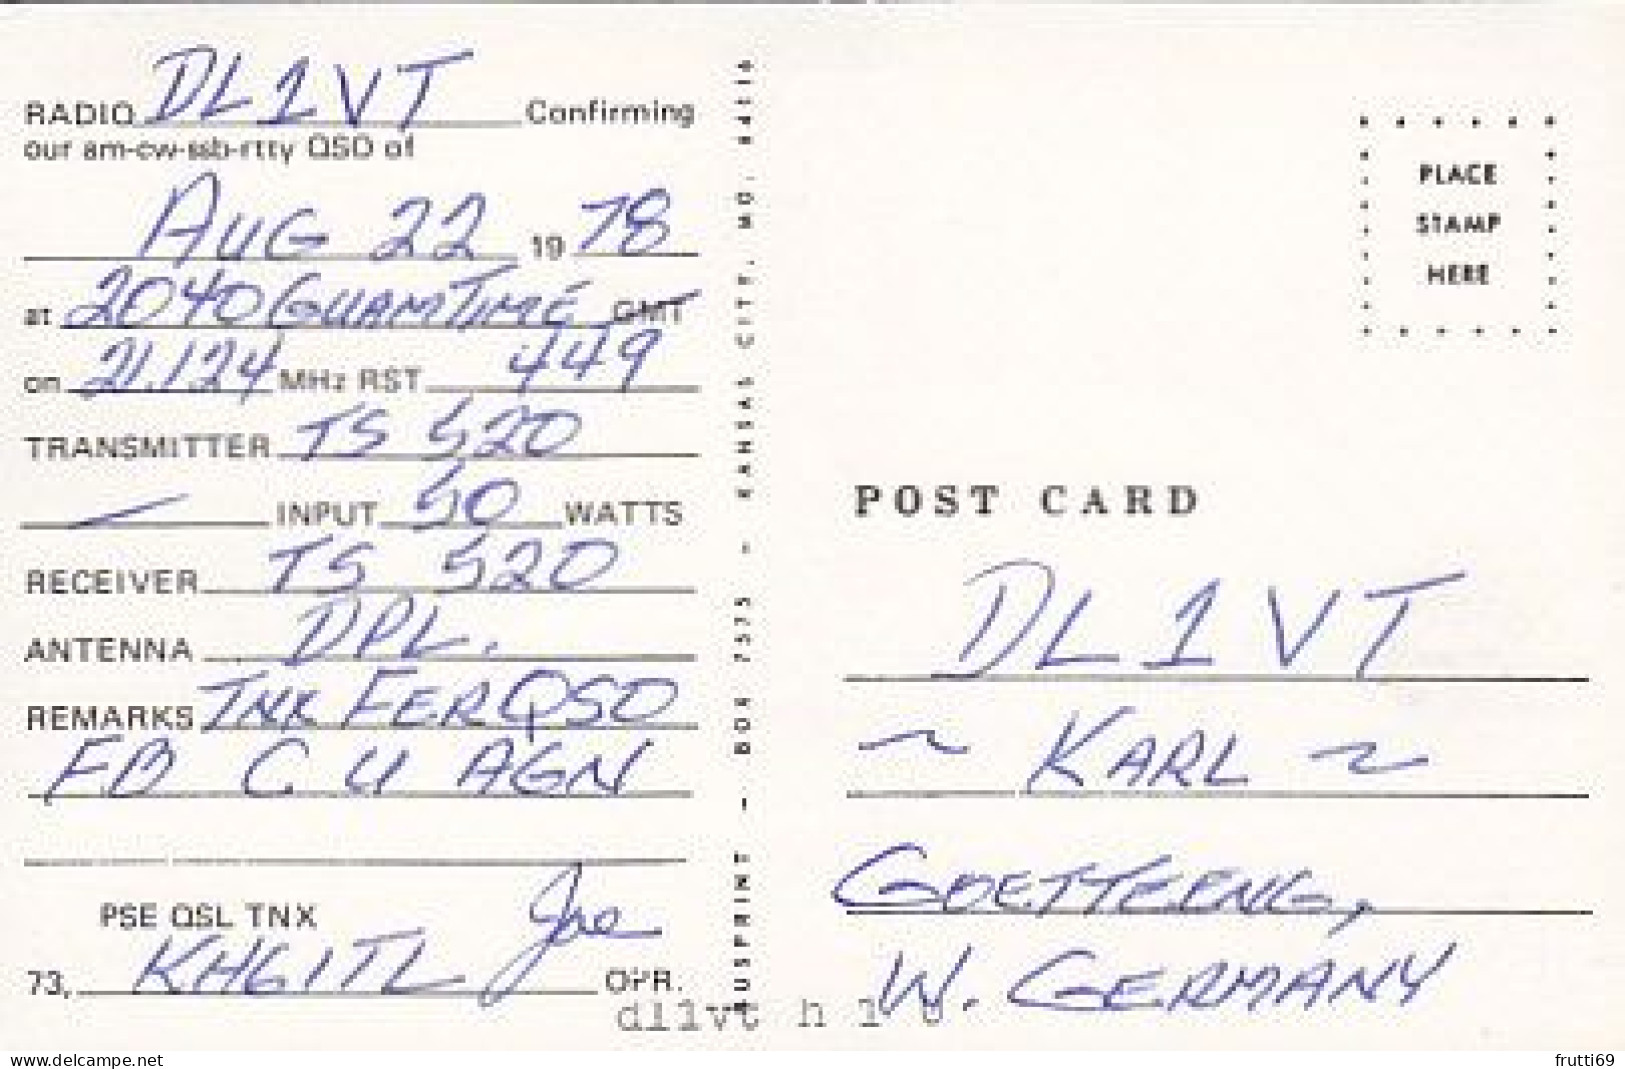 RADIO DL1VT Confirming
our am-cw-ssb-rtty QSO of
AUG 22 1978
at 2040 GUAM TIME GMT
on 21.124 MHz RST 449
TRANSMITTER TS 520
INPUT 50 WATTS
RECEIVER TS 520
ANTENNA DPL.
REMARKS TNX FER QSO
FB C U AGN
PSE QSL TNX
73, KH6ITL Joe OPR.
AUSPRINT - BOX 7575 - KANSAS CITY, MO. 64116
PLACE
STAMP
HERE
POST CARD
DL1VT
~ KARL ~
GOETTEENG,
W. GERMANY
dl1vt h 1 0
www.delcampe.net
frutti69